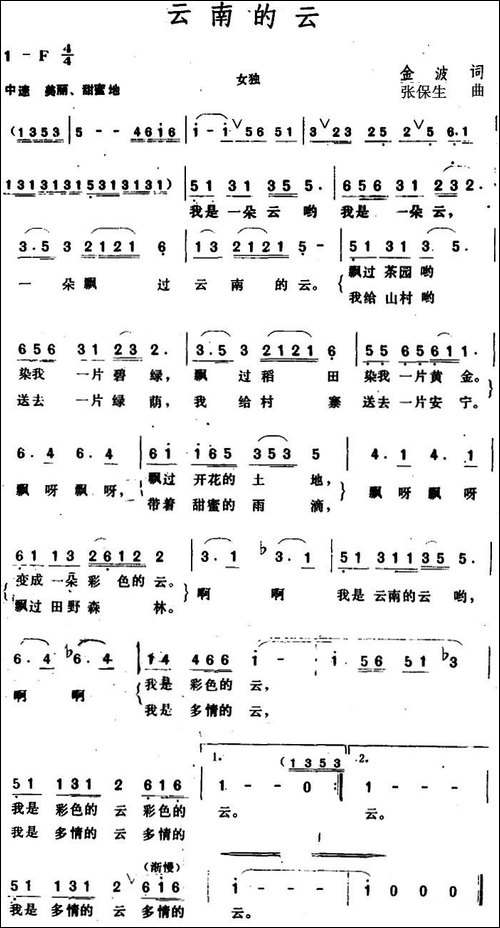 云南的云
1 - F 4/4
金波 词
中速 美丽、甜蜜地
女独
张保生 曲
(1353 | 5 - - 461i | i - i ∨56 51 | 3∨23 25 2∨5 6.1 |
1313131531313 1) | 51 31 35 5. | 656 31 232. |
我是一朵云哟 我是一朵云,
3.5 3 2121 6 | 13 2121 5 - | 51 31 3 5. |
一朵飘过云南的云。 飘过茶园哟
我给山村哟
656 31 23 2. | 3.5 3 2121 6 | 55 65611. |
染我一片碧绿, 飘过稻田 染我一片黄金。
送去一片绿荫, 我给村寨 送去一片安宁。
6.4 6.4 | 61 165 353 5 | 4.1 4.1 |
飘呀飘呀, 飘过开花的土地, 飘呀飘呀
带着甜蜜的雨滴,
61 13 26122 | 3.1 b3.1 | 51 311135 5. |
变成一朵彩色的云。 啊 啊 我是云南的云哟,
飘过田野森林。
6.4 b6.4 | 14 466 1 - | 1 - - - | 1. 56 51 b3 |
啊 啊 我是彩色的云,
我是多情的云,
1. (1353 2.
51 131 2 616 | 1 - - 0 :| 1 - - - |
我是彩色的云彩色的云。 云。
我是多情的云多情的
(渐慢)
51 131 2 ∨ 616 | i - - - | i 0 0 0 |
我是多情的云 多情的云。